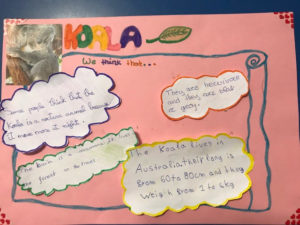 KOALA
We think that...
Some people think that the
Koala is a nocturnal animal because
it move more at night.
They are herbivores
and they are black
or grey.
The Koala is a mammal it lives
forest on the trees
The Koala lives in
Australia, their long is
from 60 to 80cm and they
weigh from 1 to 4kg